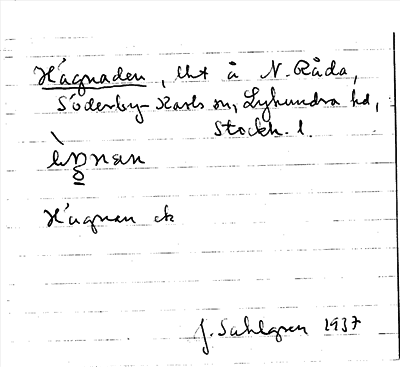 Hágnaden, lht å N. Råda,
Söderby-Karls sn, Lyhundra hd,
Stockh. l.
Hágnan ek
J. Sahlgren 1937